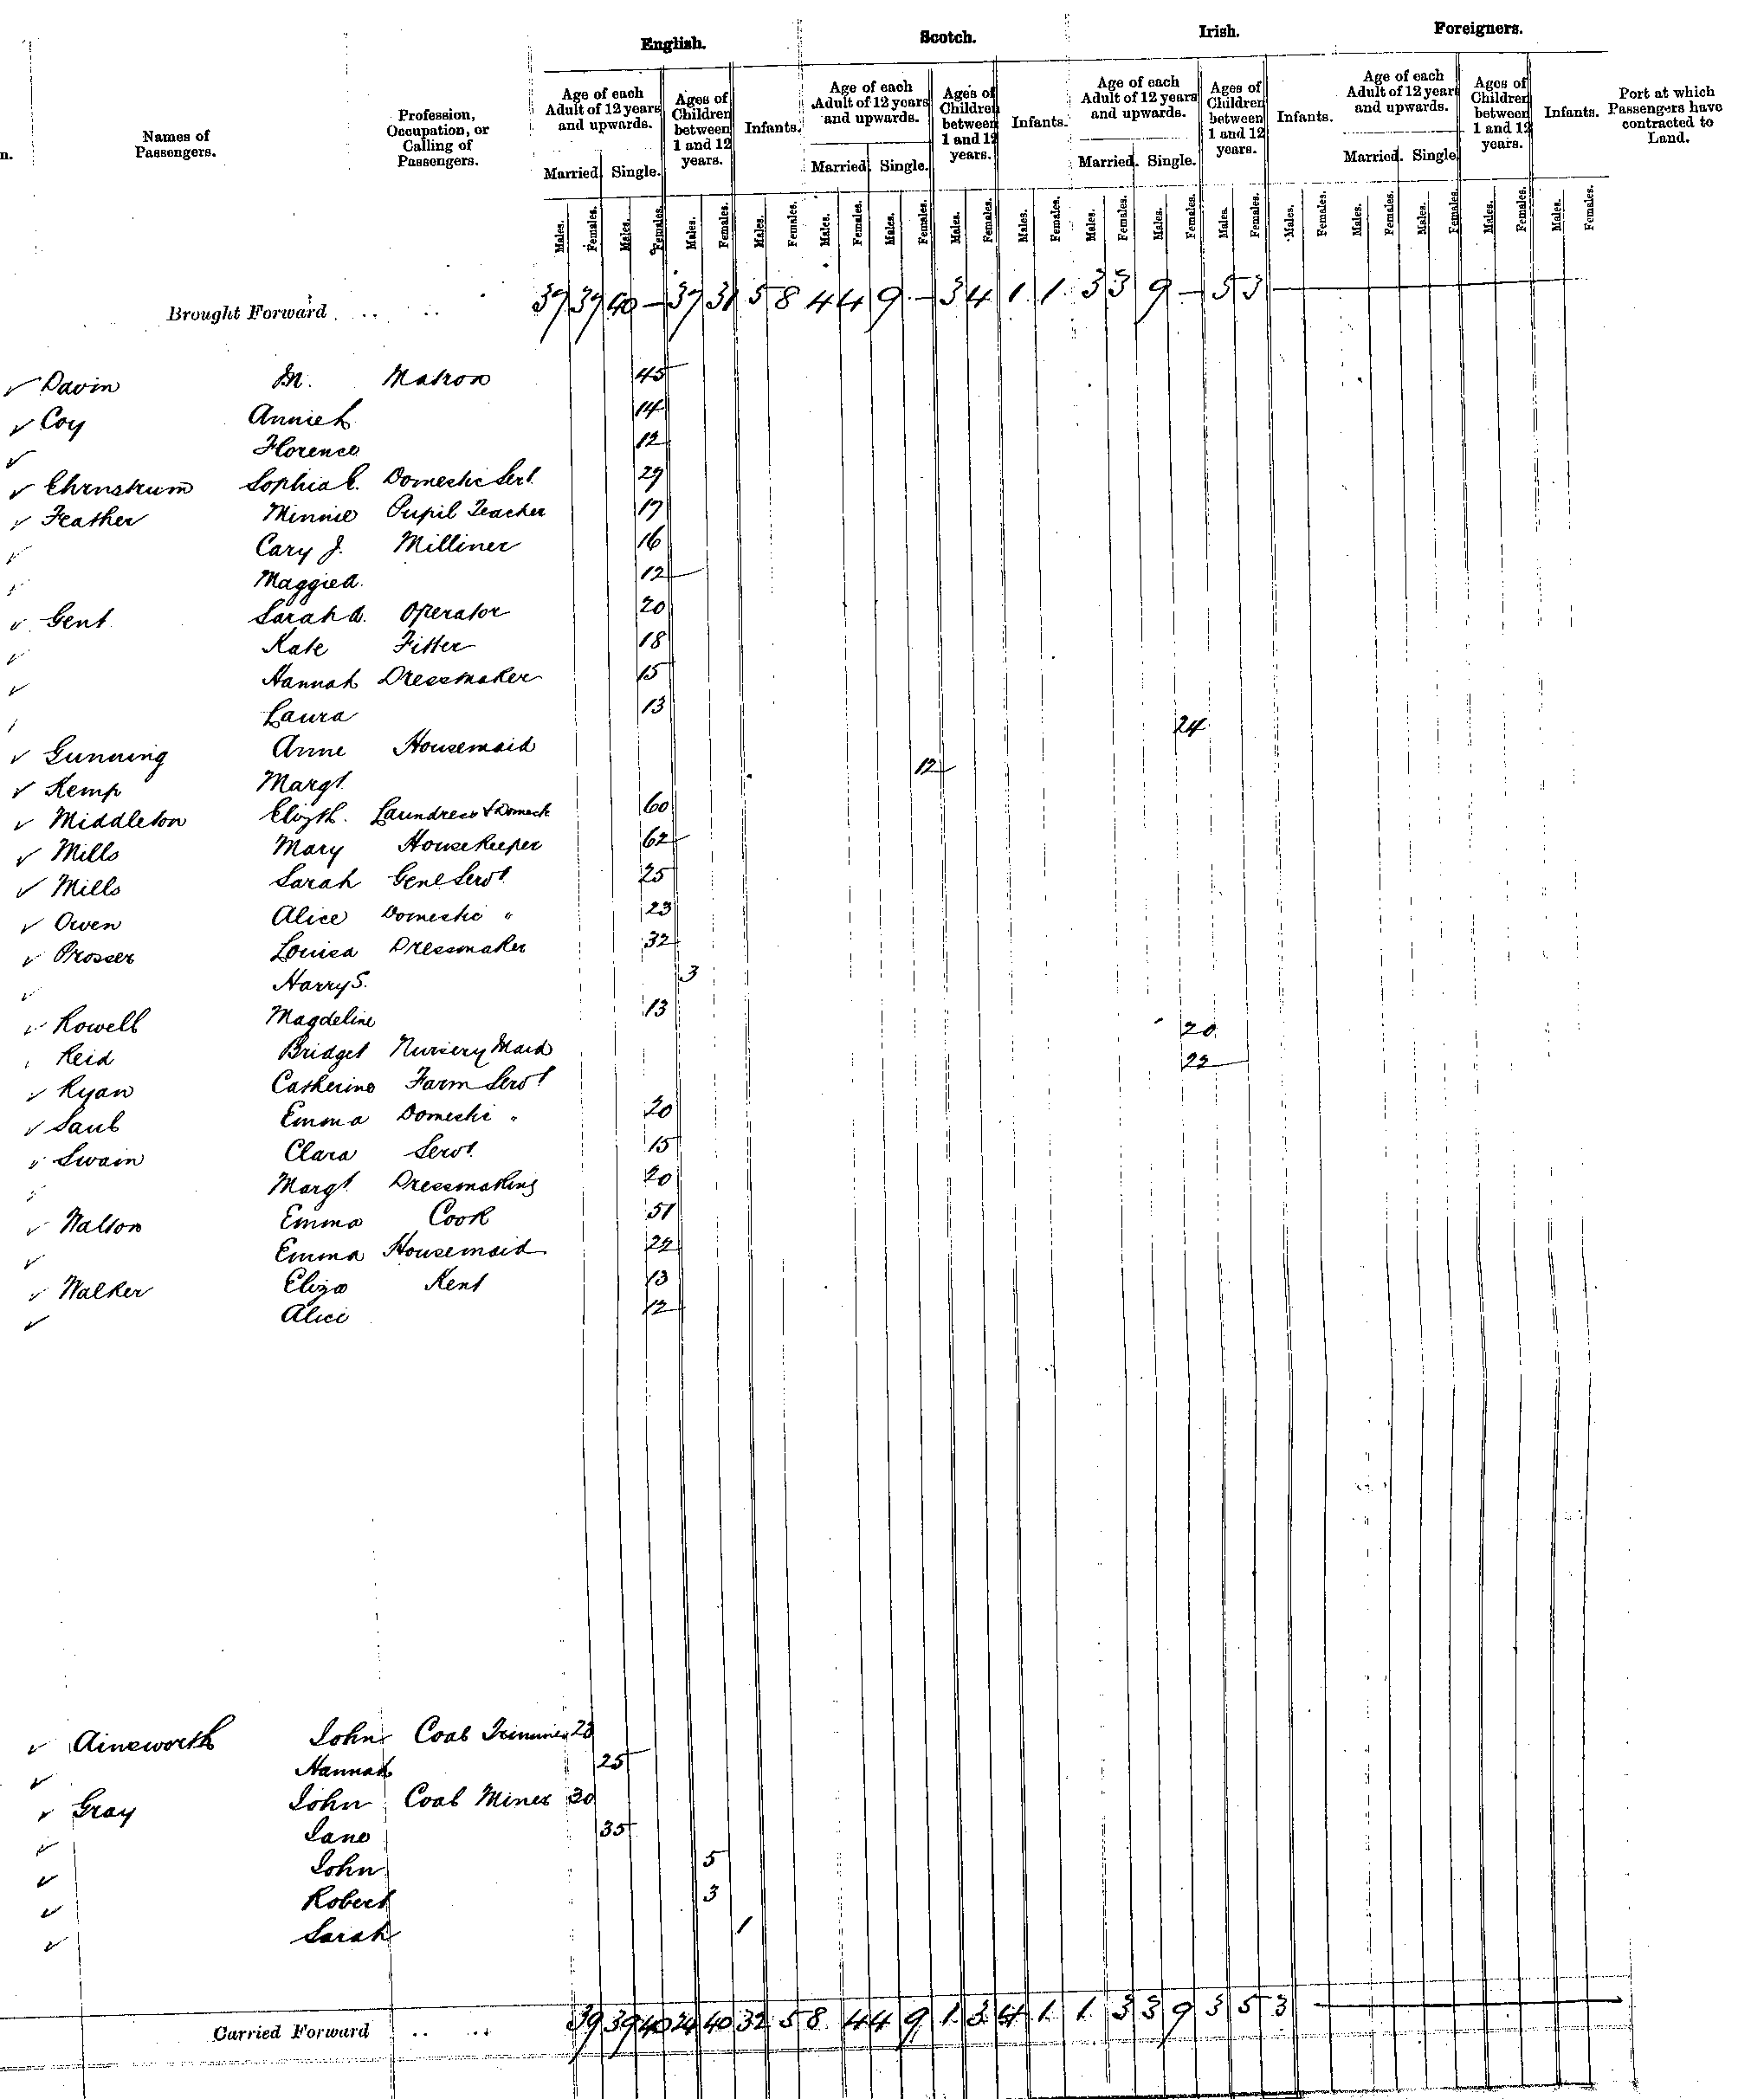 English. Scotch. Irish. Foreigners.
n. Names of Passengers. Profession, Occupation, or Calling of Passengers. Age of each Adult of 12 years and upwards. Ages of Children between 1 and 12 years. Infants. Age of each Adult of 12 years and upwards. Ages of Children between 1 and 12 years. Infants. Age of each Adult of 12 years and upwards. Ages of Children between 1 and 12 years. Infants. Age of each Adult of 12 year and upwards. Ages of Children between 1 and 12 years. Infants. Port at which Passengers have contracted to Land.
Married. Single. Married. Single. Married. Single. Married. Single
Males. Females. Males. Females. Males. Females. Males. Females. Males. Females. Males. Females. Males. Females. Males. Females. Males. Females. Males. Females. Males. Females. Males. Females. Males. Females. Males. Females. Males. Females. Males. Females.
Brought Forward .. .. 37 37 40 – 37 31 5 8 4 4 9 – 3 4 1 1 3 3 9 – 5 3
✓ Davin M. Matron 45
✓ Coy Annie L 14
✓ Florence 12
✓ Ehrnstrum Sophia C. Domestic Sert. 29
✓ Feather Minnie Pupil Teacher 17
✓ Cary J. Milliner 16
✓ Maggie A. 12
✓ Gent Sarah A. Operator 20
✓ Kate Fitter 18
✓ Hannah Dressmaker 15
Laura 13
✓ Gunning Anne Housemaid 24
✓ Kemp Margt. 12
✓ Middleton Elizth. Laundress & Domestc 60
✓ Mills Mary Housekeeper 62
✓ Mills Sarah Genl Servt 25
✓ Owen Alice Domestic " 23
✓ Prosser Louisa Dressmaker 32
✓ Harry S. 3
✓ Rowell Magdeline 13
Reid Bridget Nursery Maid 20
✓ Ryan Catherine Farm Servt 22
✓ Saub Emma Domestic " 20
✓ Swain Clara Servt. 15
✓ Margt. Dressmaking 20
✓ Walton Emma Cook 51
✓ Emma Housemaid 22
✓ Walker Eliza Kent 13
✓ Alice 12
✓ Ainsworth John Coal Trimmer 23
✓ Hannah 25
✓ Gray John Coal Miner 30
✓ Jane 35
✓ John 5
✓ Robert 3
✓ Sarah 1
Carried Forward .. .. 39 39 40 24 40 32 5 8 4 4 9 1 3 4 1 1 3 3 9 3 5 3